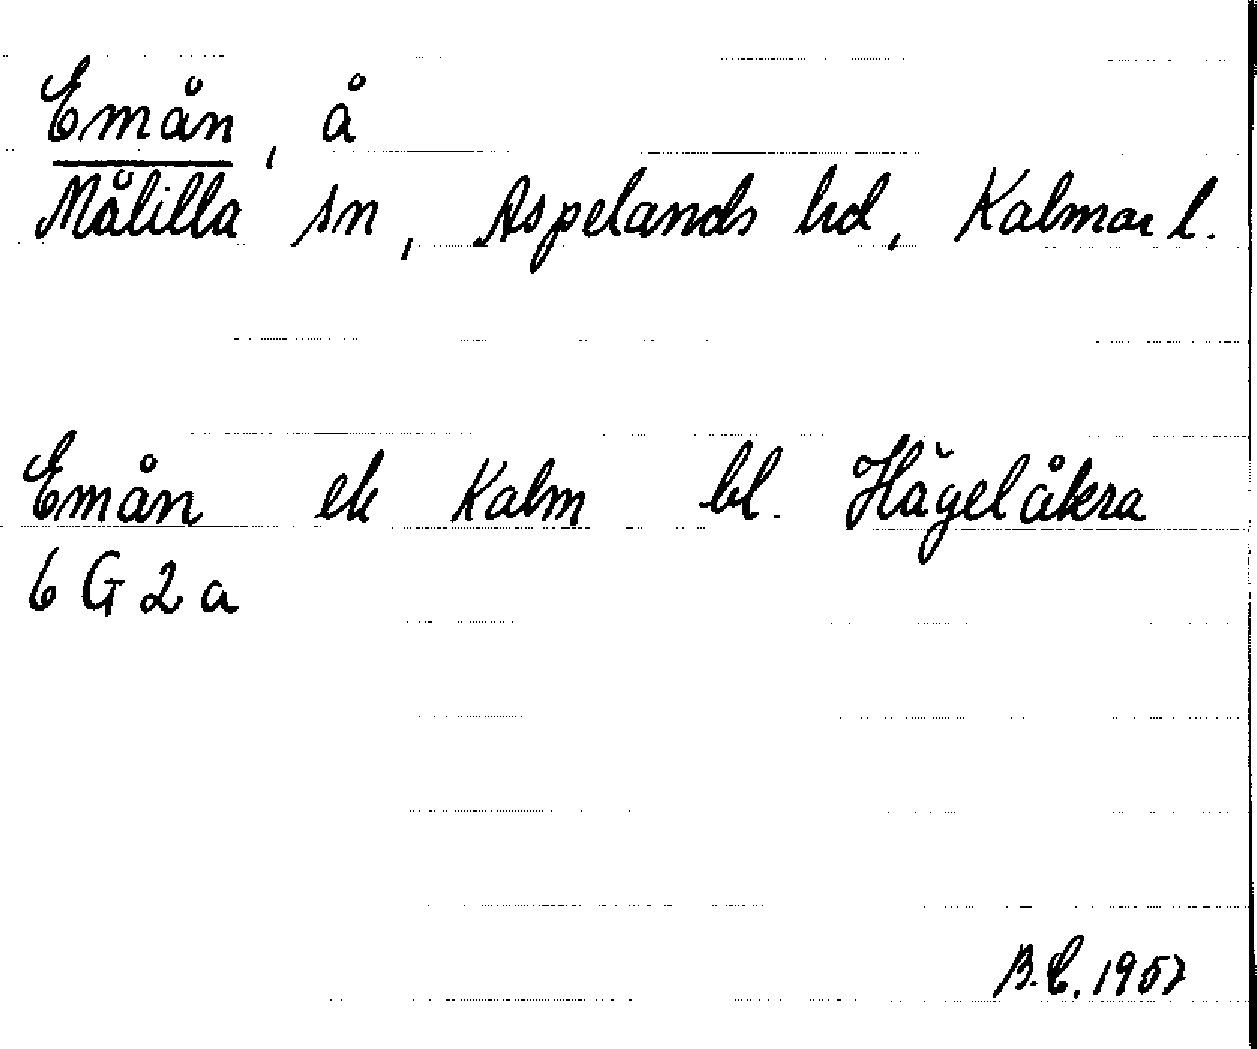 Emån, å
Målilla sn, Aspelands hd, Kalmar l.
Emån ek Kalm bl. Hägelåkra
6 G 2 a
B.E. 1957